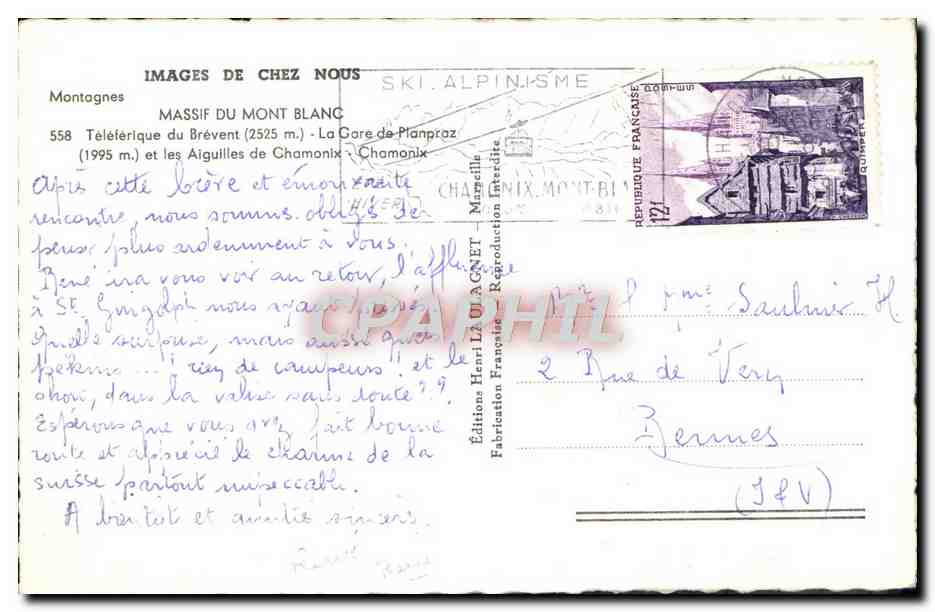 IMAGES DE CHEZ NOUS
Montagnes
MASSIF DU MONT BLANC
558 Téléférique du Brévent (2525 m.) - La Gare de Planpraz
(1995 m.) et les Aiguilles de Chamonix - Chamonix
SKI. ALPINISME
CHAMONIX. MONT-BL
HIVER
REPUBLIQUE FRANÇAISE
POSTES
12f
QUIMPER
Après cette brève et émouvante
rencontre, nous sommes obligés de
penser plus ardemment à vous.
René ira vous voir au retour, l'affluence
à St. Gingolph nous ayant
Quelle surprise, mais aussi quel
pékins ... ! rien de campeurs ! et le
short, dans la valise sans doute ? ?
Espérons que vous avez fait bonne
route et apprécié le charme de la
suisse partout impeccable.
A bientôt et amitiés sincères.
Éditions Henri LAULAGNET - Marseille
Fabrication Française - Reproduction Interdite
CPAPHIL
Mr & Mme Saulnier H.
2 Rue de Vern
Rennes
(I & V)